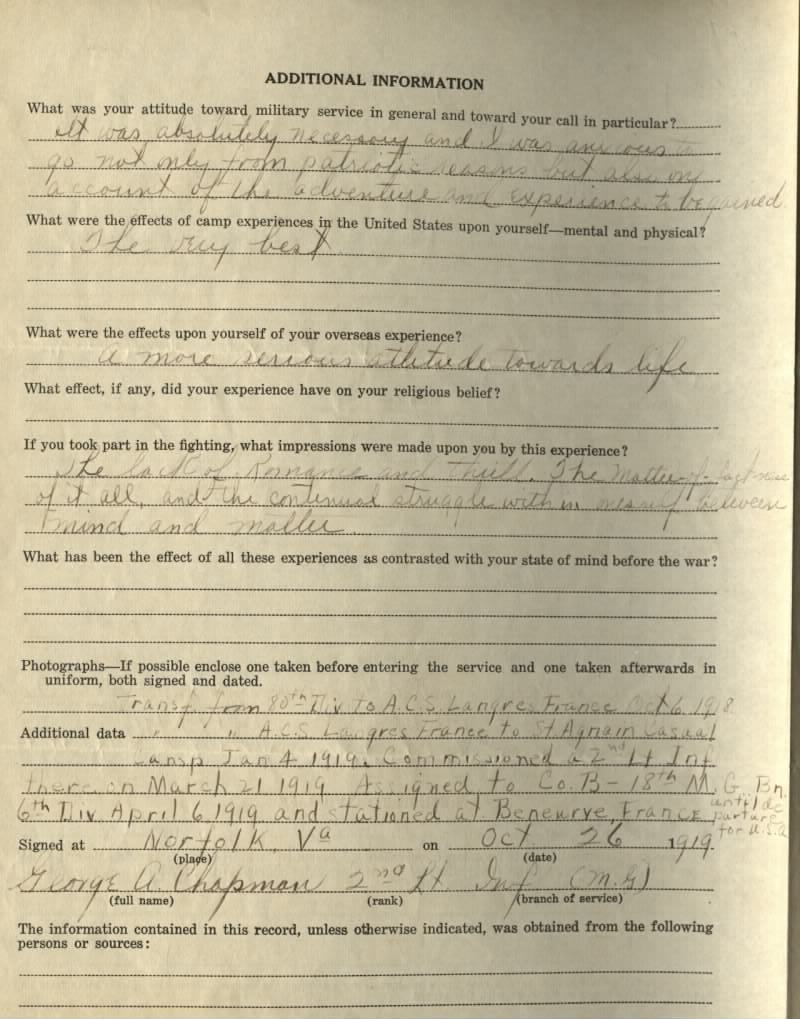 ADDITIONAL INFORMATION
What was your attitude toward military service in general and toward your call in particular?
It was absolutely necessary and I was anxious to
go not only from patriotic reasons but also on
account of the adventure and experience to be gained
What were the effects of camp experiences in the United States upon yourself—mental and physical?
The very best
What were the effects upon yourself of your overseas experience?
a more serious attitude towards life
What effect, if any, did your experience have on your religious belief?
If you took part in the fighting, what impressions were made upon you by this experience?
The lack of Romance and Thrill. The Matter-of-fact-ness
of it all, and the continual struggle within oneself between
mind and matter.
What has been the effect of all these experiences as contrasted with your state of mind before the war?
Photographs—If possible enclose one taken before entering the service and one taken afterwards in
uniform, both signed and dated.
Transf from 80th Div to A.C.S. Langres France Oct 6 1918
Additional data " " A.C.S. Langres France to St Agnain Casual
Camp Jan 4 1919. Commissioned a 2nd Lt Inf
there on March 21 1919 Assigned to Co. B - 18th M.G. Bn.
6th Div April 6 1919 and stationed at Beneurve, France until de
parture
for U.S.A
Signed at Norfolk, Va on Oct 26 1919.
(place) (date)
George A. Chapman 2nd Lt. Inf (M.G)
(full name) (rank) (branch of service)
The information contained in this record, unless otherwise indicated, was obtained from the following
persons or sources: